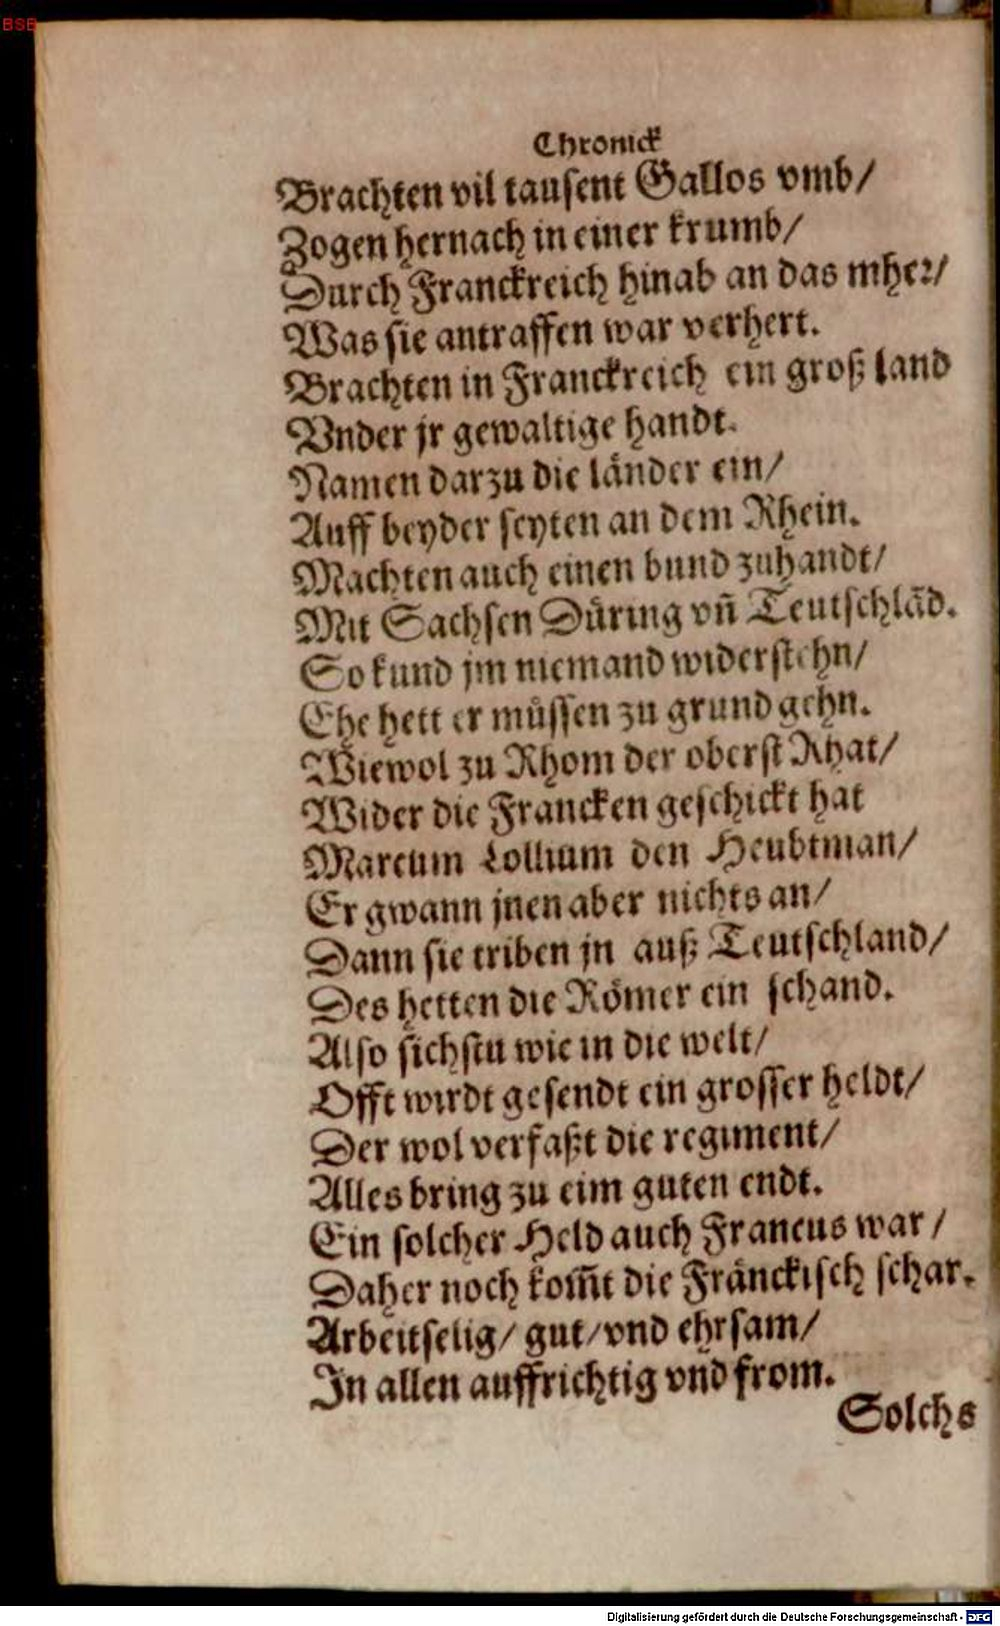 BSB
Chronick
Brachten vil tausent Gallos vmb/
Zogen hernach in einer krumb/
Durch Franckreich hinab an das mher/
Was sie antraffen war verhert.
Brachten in Franckreich ein groß land
Vnder jr gewaltige handt.
Namen darzu die länder ein/
Auff beyder seyten an dem Rhein.
Machten auch einen bund zuhandt/
Mit Sachsen Düring vñ Teutschlād.
So kund jm niemand widerstehn/
Ehe hett er müssen zu grund gehn.
Wiewol zu Rhom der oberst Rhat/
Wider die Francken geschickt hat
Marcum Lollium den Heubtman/
Er gwann jnen aber nichts an/
Dann sie triben jn auß Teutschland/
Des hetten die Römer ein schand.
Also sichstu wie in die welt/
Offt wirdt gesendt ein grosser heldt/
Der wol verfaßt die regiment/
Alles bring zu eim guten endt.
Ein solcher Held auch Francus war/
Daher noch kom̄t die Fränckisch schar.
Arbeitselig/ gut/vnd ehrsam/
In allen auffrichtig vnd from.
Solchs
Digitalisierung gefördert durch die Deutsche Forschungsgemeinschaft - DFG